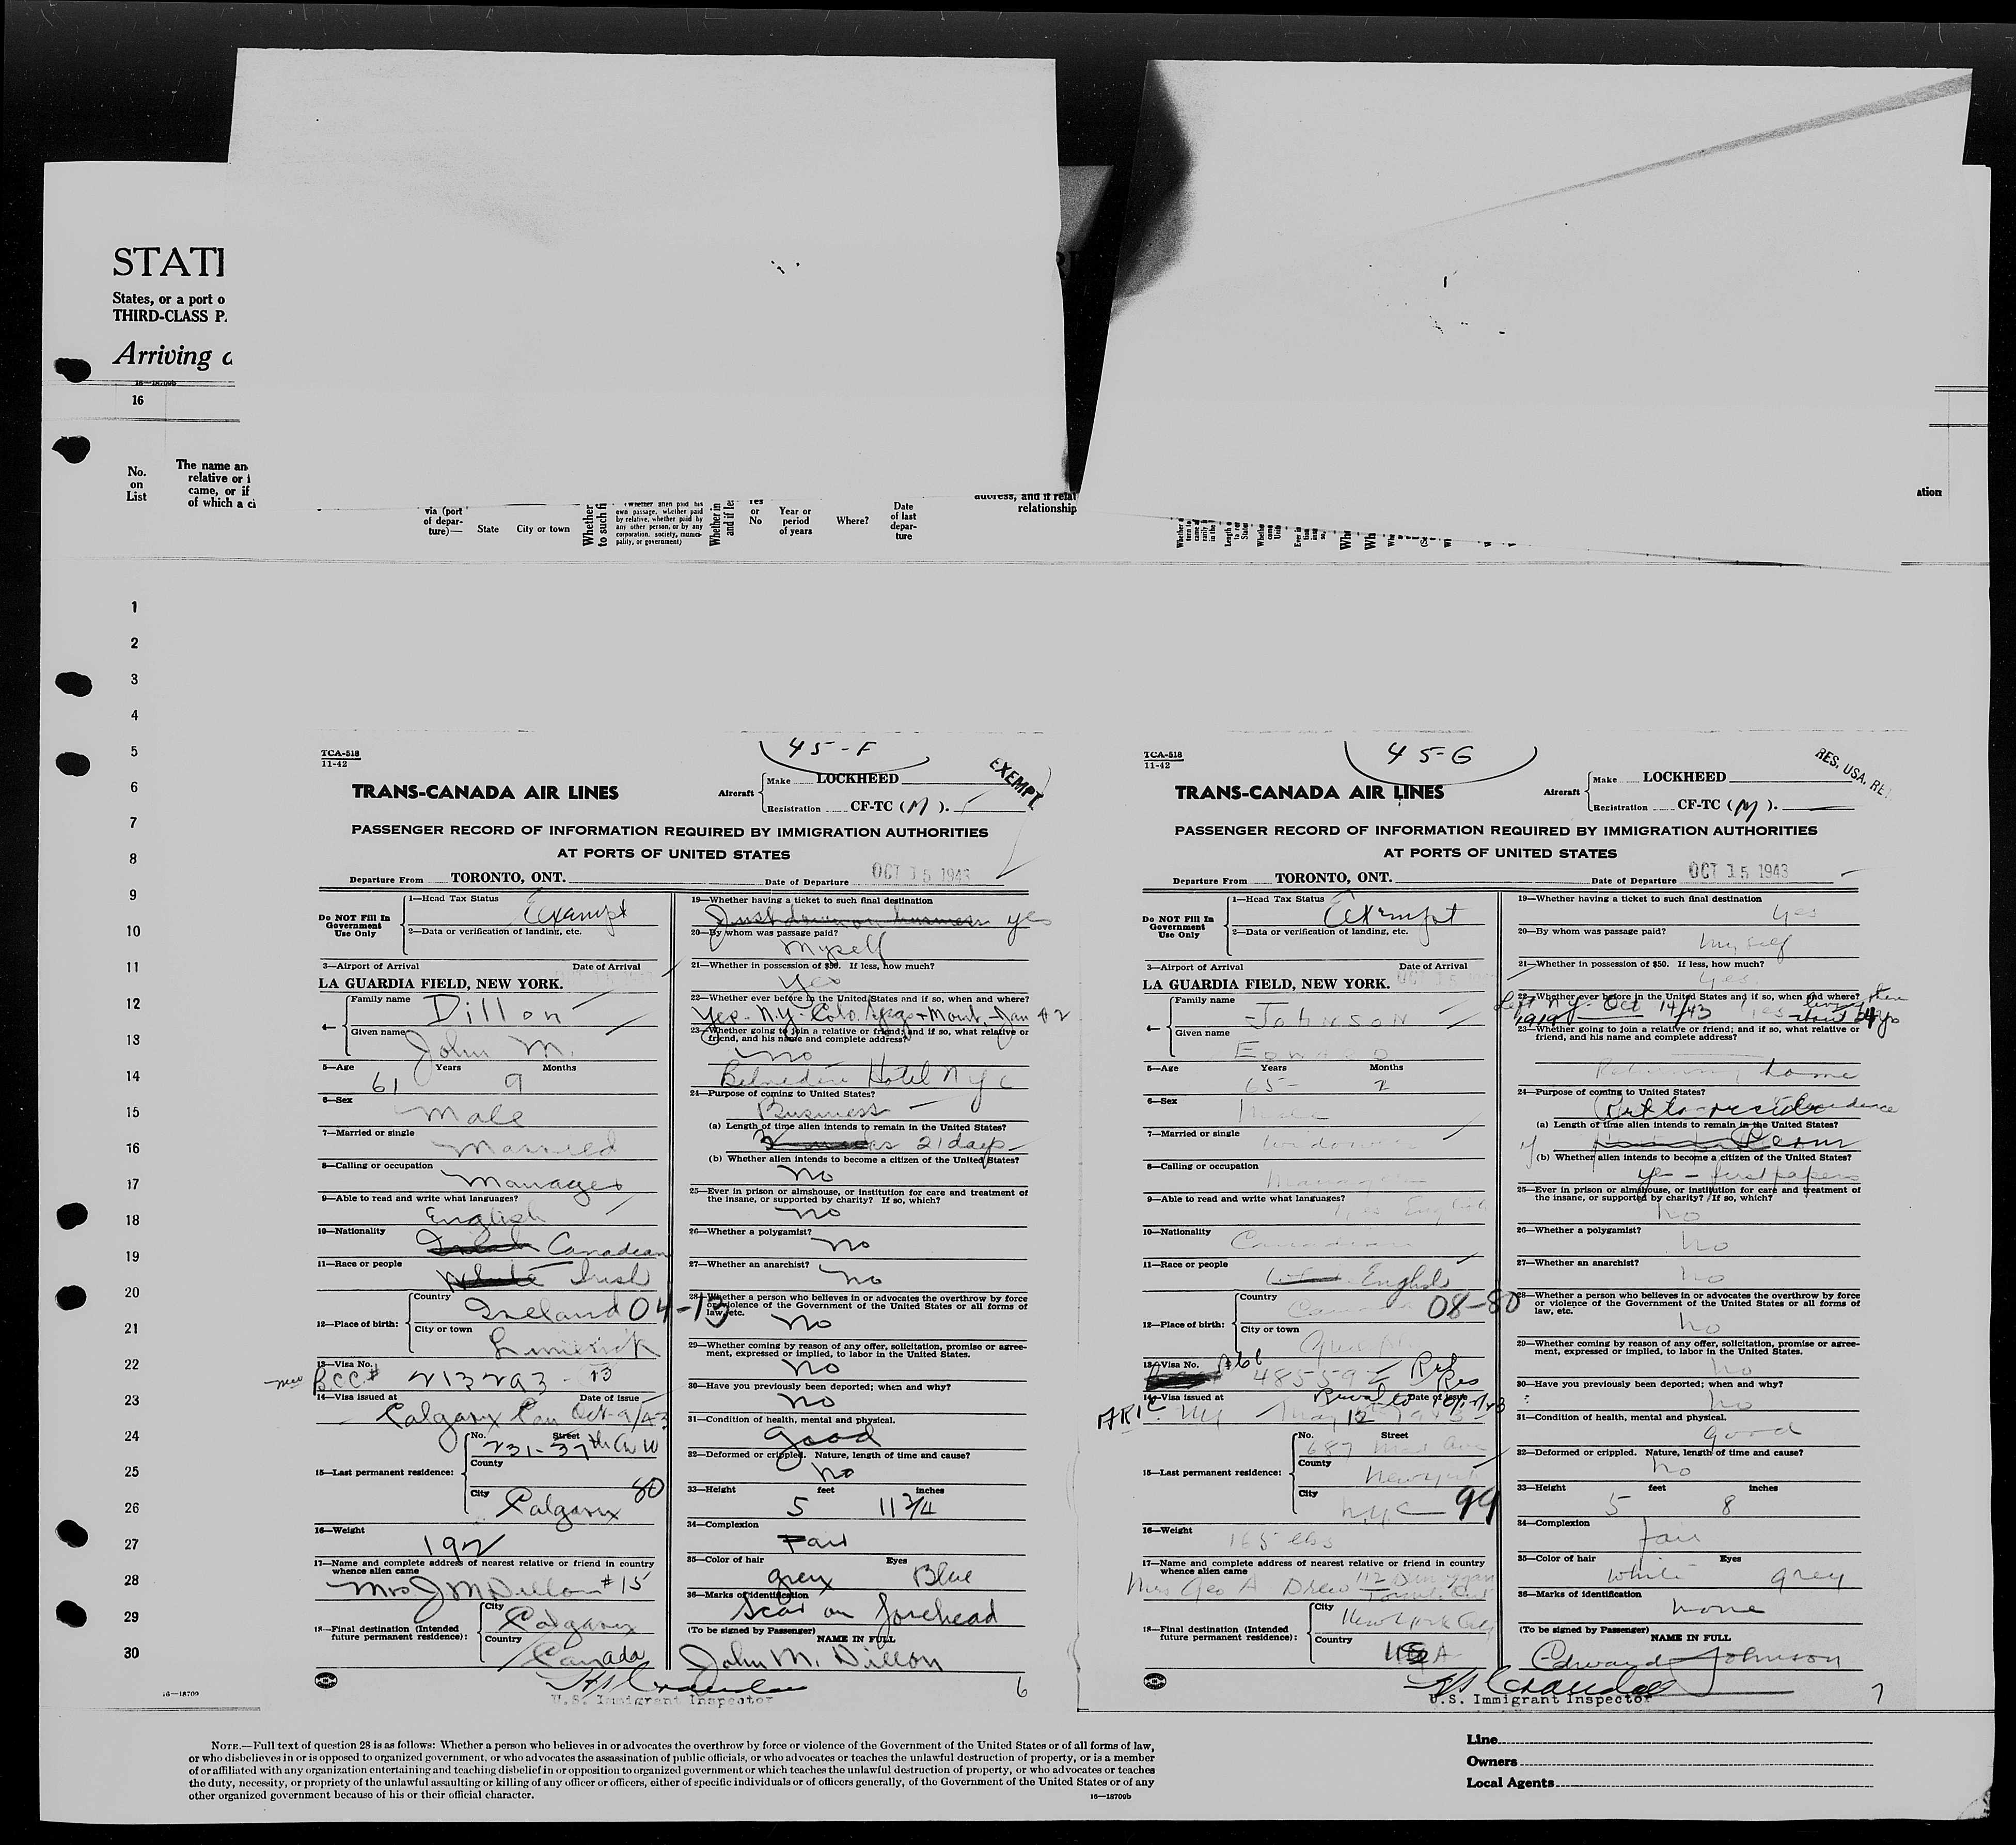 STATI
States, or a port o
THIRD-CLASS P.
Arriving a
16—18709b
16
No.
on
List
The name an
relative or i
came, or if
of which a ci
via (port
of depar-
ture)—
State
City or town
Whether
to such fi
(Whether alien paid his
own passage, whether paid
by relative, whether paid by
any other person, or by any
corporation, society, munici-
pality, or government)
Whether in
and if les
Yes
or
No
Year or
period
of years
Where?
Date
of last
depar-
ture
address, and if relat
relationship
ation
1
2
3
4
5
6
7
8
9
10
11
12
13
14
15
16
17
18
19
20
21
22
23
24
25
26
27
28
29
30
16—18709
TCA-518
11-42
45-F
EXEMPT
TRANS-CANADA AIR LINES
Aircraft
Make LOCKHEED
Registration CF-TC (M).
PASSENGER RECORD OF INFORMATION REQUIRED BY IMMIGRATION AUTHORITIES
AT PORTS OF UNITED STATES
Departure From TORONTO, ONT. Date of Departure OCT 15 1943
Do NOT Fill In
Government
Use Only
1—Head Tax Status Exempt
2—Data or verification of landing, etc.
3—Airport of Arrival Date of Arrival
LA GUARDIA FIELD, NEW YORK.
4— Family name Dillon
Given name John M.
5—Age 61 Years 9 Months
6—Sex Male
7—Married or single Married
8—Calling or occupation Manager
9—Able to read and write what languages?
English
10—Nationality Canadian
11—Race or people White Irish
12—Place of birth: Country Ireland 04-13
City or town Limerick
13—Visa No.
B.C.C.# 213293 - 13
14—Visa issued at Date of issue
Calgary Can Oct-9/43
15—Last permanent residence: No. Street 231-37th Av W
County
80
City Calgary
16—Weight 192
17—Name and complete address of nearest relative or friend in country
whence alien came
Mrs J M Dillon #15
18—Final destination (Intended
future permanent residence):
City Calgary
Country Canada
U.S. Immigrant Inspector
19—Whether having a ticket to such final destination
Just down on business yes
20—By whom was passage paid?
Myself
21—Whether in possession of $50. If less, how much?
Yes
22—Whether ever before in the United States and if so, when and where?
Yes - N.Y. Colo. & Mont. - Jan 42
23—Whether going to join a relative or friend; and if so, what relative or
friend, and his name and complete address?
No
Belvedere Hotel N Y C
24—Purpose of coming to United States?
Business
(a) Length of time alien intends to remain in the United States?
21 days
(b) Whether alien intends to become a citizen of the United States?
No
25—Ever in prison or almshouse, or institution for care and treatment of
the insane, or supported by charity? If so, which?
No
26—Whether a polygamist?
No
27—Whether an anarchist?
No
28—Whether a person who believes in or advocates the overthrow by force
or violence of the Government of the United States or all forms of
law, etc.
No
29—Whether coming by reason of any offer, solicitation, promise or agree-
ment, expressed or implied, to labor in the United States.
No
30—Have you previously been deported; when and why?
No
31—Condition of health, mental and physical.
Good
32—Deformed or crippled. Nature, length of time and cause?
No
33—Height 5 feet 11 3/4 inches
34—Complexion
Fair
35—Color of hair Grey Eyes Blue
36—Marks of identification
Scar on forehead
(To be signed by Passenger)
NAME IN FULL
John M. Dillon
6
TCA-518
11-42
45-G
RES. USA. RE
TRANS-CANADA AIR LINES
Aircraft
Make LOCKHEED
Registration CF-TC (M).
PASSENGER RECORD OF INFORMATION REQUIRED BY IMMIGRATION AUTHORITIES
AT PORTS OF UNITED STATES
Departure From TORONTO, ONT. Date of Departure OCT 15 1943
Do NOT Fill In
Government
Use Only
1—Head Tax Status Exempt
2—Data or verification of landing, etc.
3—Airport of Arrival Date of Arrival
LA GUARDIA FIELD, NEW YORK.
4— Family name JOHNSON
Given name EDWARD
5—Age 65 Years 2 Months
6—Sex Male
7—Married or single Widower
8—Calling or occupation Manager
9—Able to read and write what languages?
Yes English
10—Nationality Canadian
11—Race or people English
12—Place of birth: Country Canada 08-80
City or town Guelph
13—Visa No.
485592 Ret Res
14—Visa issued at Date of issue
NY May 12 1943
15—Last permanent residence: No. Street 687 Mad Ave
County New York
City N.Y.C 99
16—Weight 165 lbs
17—Name and complete address of nearest relative or friend in country
whence alien came
Mrs Geo A Drew 112
18—Final destination (Intended
future permanent residence):
City New York City
Country USA
U.S. Immigrant Inspector
19—Whether having a ticket to such final destination
Yes
20—By whom was passage paid?
Myself
21—Whether in possession of $50. If less, how much?
Yes
22—Whether ever before in the United States and if so, when and where?
Left N.Y. Oct 14/43
1919
23—Whether going to join a relative or friend; and if so, what relative or
friend, and his name and complete address?
Returning home
24—Purpose of coming to United States?
Residence
(a) Length of time alien intends to remain in the United States?
Perm
(b) Whether alien intends to become a citizen of the United States?
Yes - first papers
25—Ever in prison or almshouse, or institution for care and treatment of
the insane, or supported by charity? If so, which?
No
26—Whether a polygamist?
No
27—Whether an anarchist?
No
28—Whether a person who believes in or advocates the overthrow by force
or violence of the Government of the United States or all forms of
law, etc.
No
29—Whether coming by reason of any offer, solicitation, promise or agree-
ment, expressed or implied, to labor in the United States.
No
30—Have you previously been deported; when and why?
No
31—Condition of health, mental and physical.
Good
32—Deformed or crippled. Nature, length of time and cause?
No
33—Height 5 feet 8 inches
34—Complexion
Fair
35—Color of hair White Eyes Grey
36—Marks of identification
None
(To be signed by Passenger)
NAME IN FULL
Edward Johnson
7
NOTE.—Full text of question 28 is as follows: Whether a person who believes in or advocates the overthrow by force or violence of the Government of the United States or of all forms of law,
or who disbelieves in or is opposed to organized government, or who advocates the assassination of public officials, or who advocates or teaches the unlawful destruction of property, or is a member
of or affiliated with any organization entertaining and teaching disbelief in or opposition to organized government or which teaches the unlawful destruction of property, or who advocates or teaches
the duty, necessity, or propriety of the unlawful assaulting or killing of any officer or officers, either of specific individuals or of officers generally, of the Government of the United States or of any
other organized government because of his or their official character.
16—18709b
Line
Owners
Local Agents